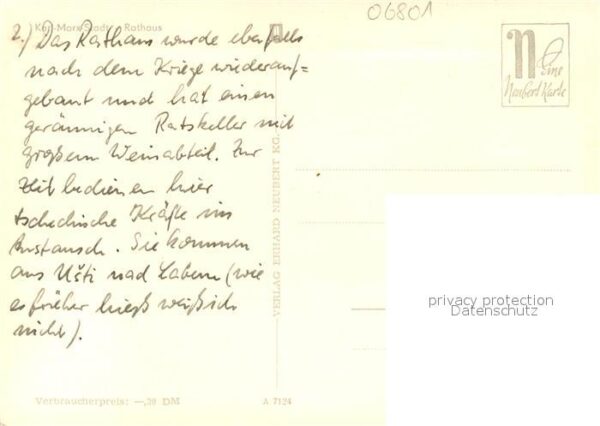 Karl-Marx-Stadt Rathaus
06801
2.) Das Rathaus wurde ebenfalls
nach dem Kriege wiederauf=
gebaut und hat einen
geräumigen Ratskeller mit
großem Weinabteil. Zur
Zeit bedienen hier
tschechische Kräfte im
Austausch. Sie kommen
aus Usti nad Labem (wie
es früher hieß weiß ich
nicht).
n
Eine
Neubert Karte
VERLAG ERHARD NEUBERT KG.
privacy protection
Datenschutz
Verbraucherpreis: —,20 DM
A 7124